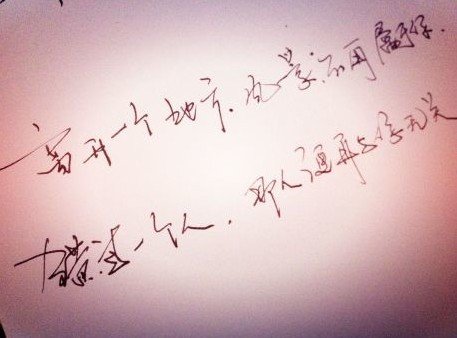 离开一个地方,风景不再属于你.
错过一个人,那人便再与你无关